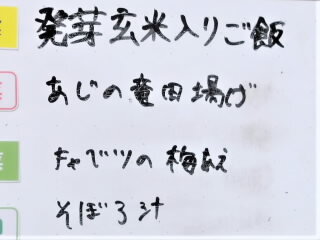 発芽玄米入りご飯
あじの竜田揚げ
キャベツの梅あえ
そぼろ汁